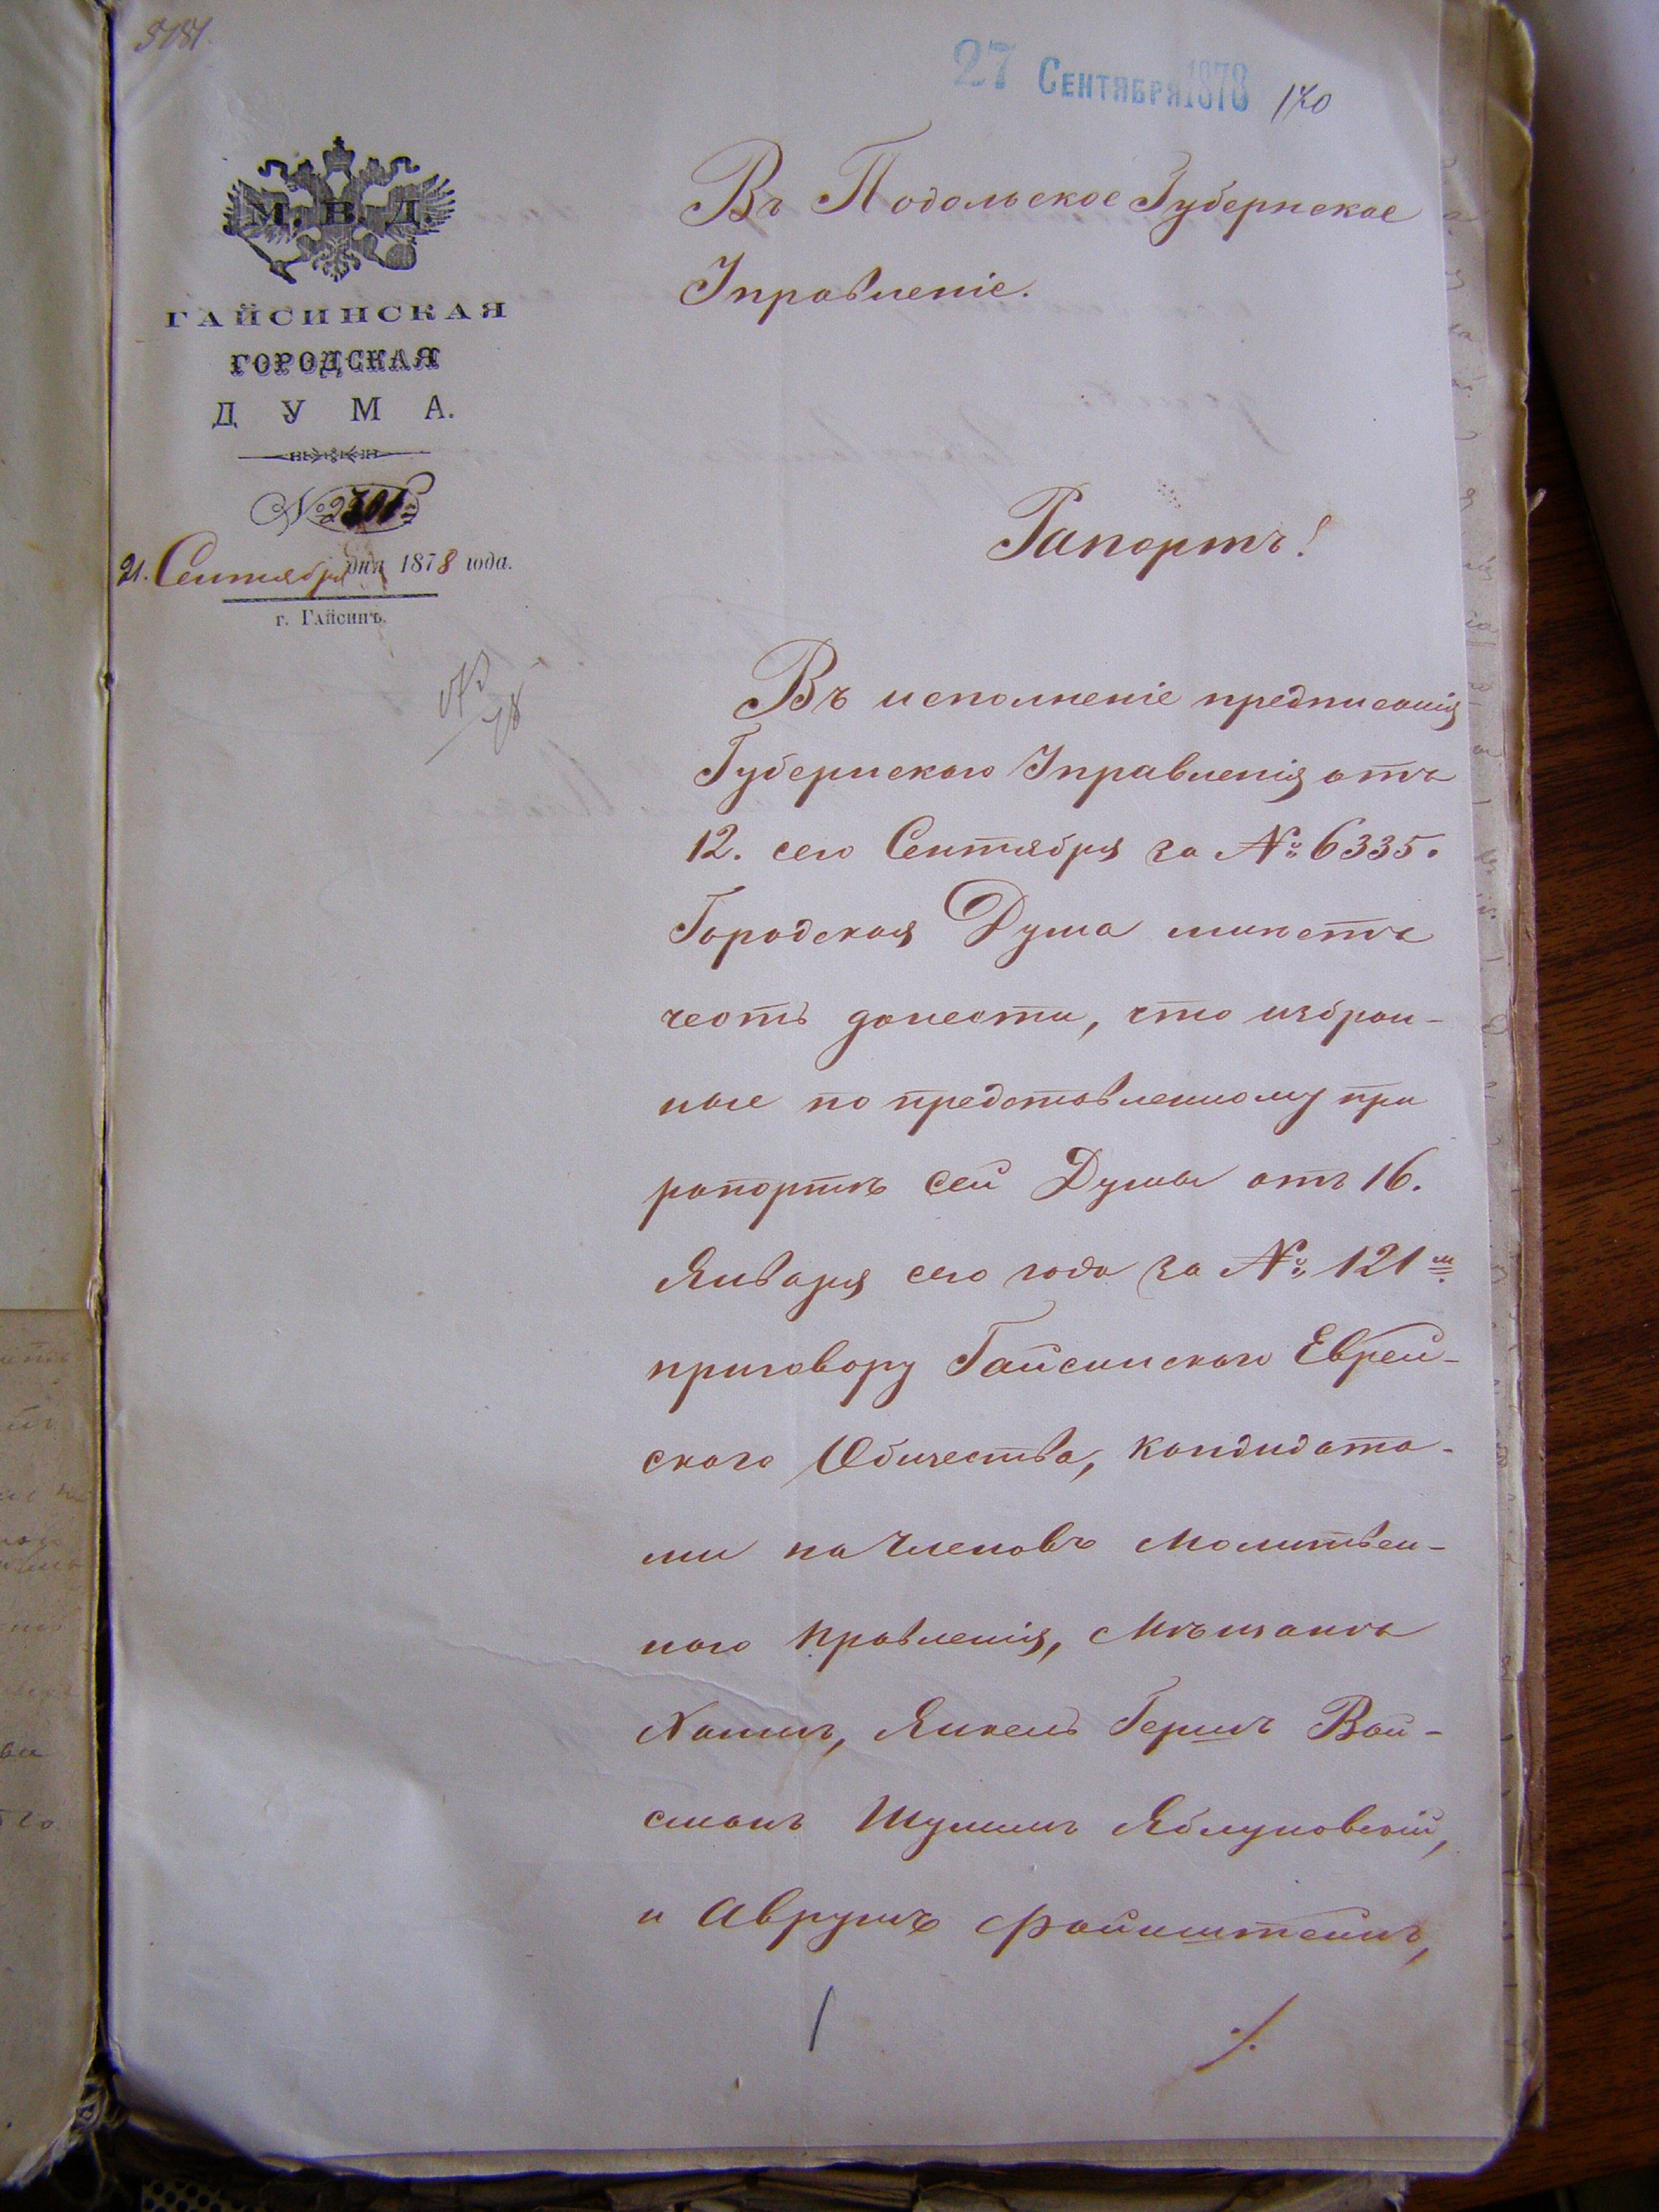 5181.
27 Сентября 1878
170
М. В. Д.
ГАЙСИНСКАЯ
ГОРОДСКАЯ
ДУМА.
№ 2301
21. Сентября дня 1878 года.
г. Гайсинъ.
Въ Подольское Губернское
Управленіе.
Рапортъ!
Въ исполненіе предписанія
Губернскаго Управленія отъ
12. сего Сентября за № 6335.
Городская Дума имѣетъ
честь донести, что избран-
ные по представленному при
рапортѣ сей Думы отъ 16.
Января сего года за № 121 м
приговору Гайсинскаго Еврей-
скаго Общества, кандидата-
ми на Членовъ Молитвен-
наго правленія, Мѣщане
Хаимъ, Янкель Гершъ Вай-
сманъ Шулимъ Яблуновскій,
и Аврумъ Файнштейнъ,